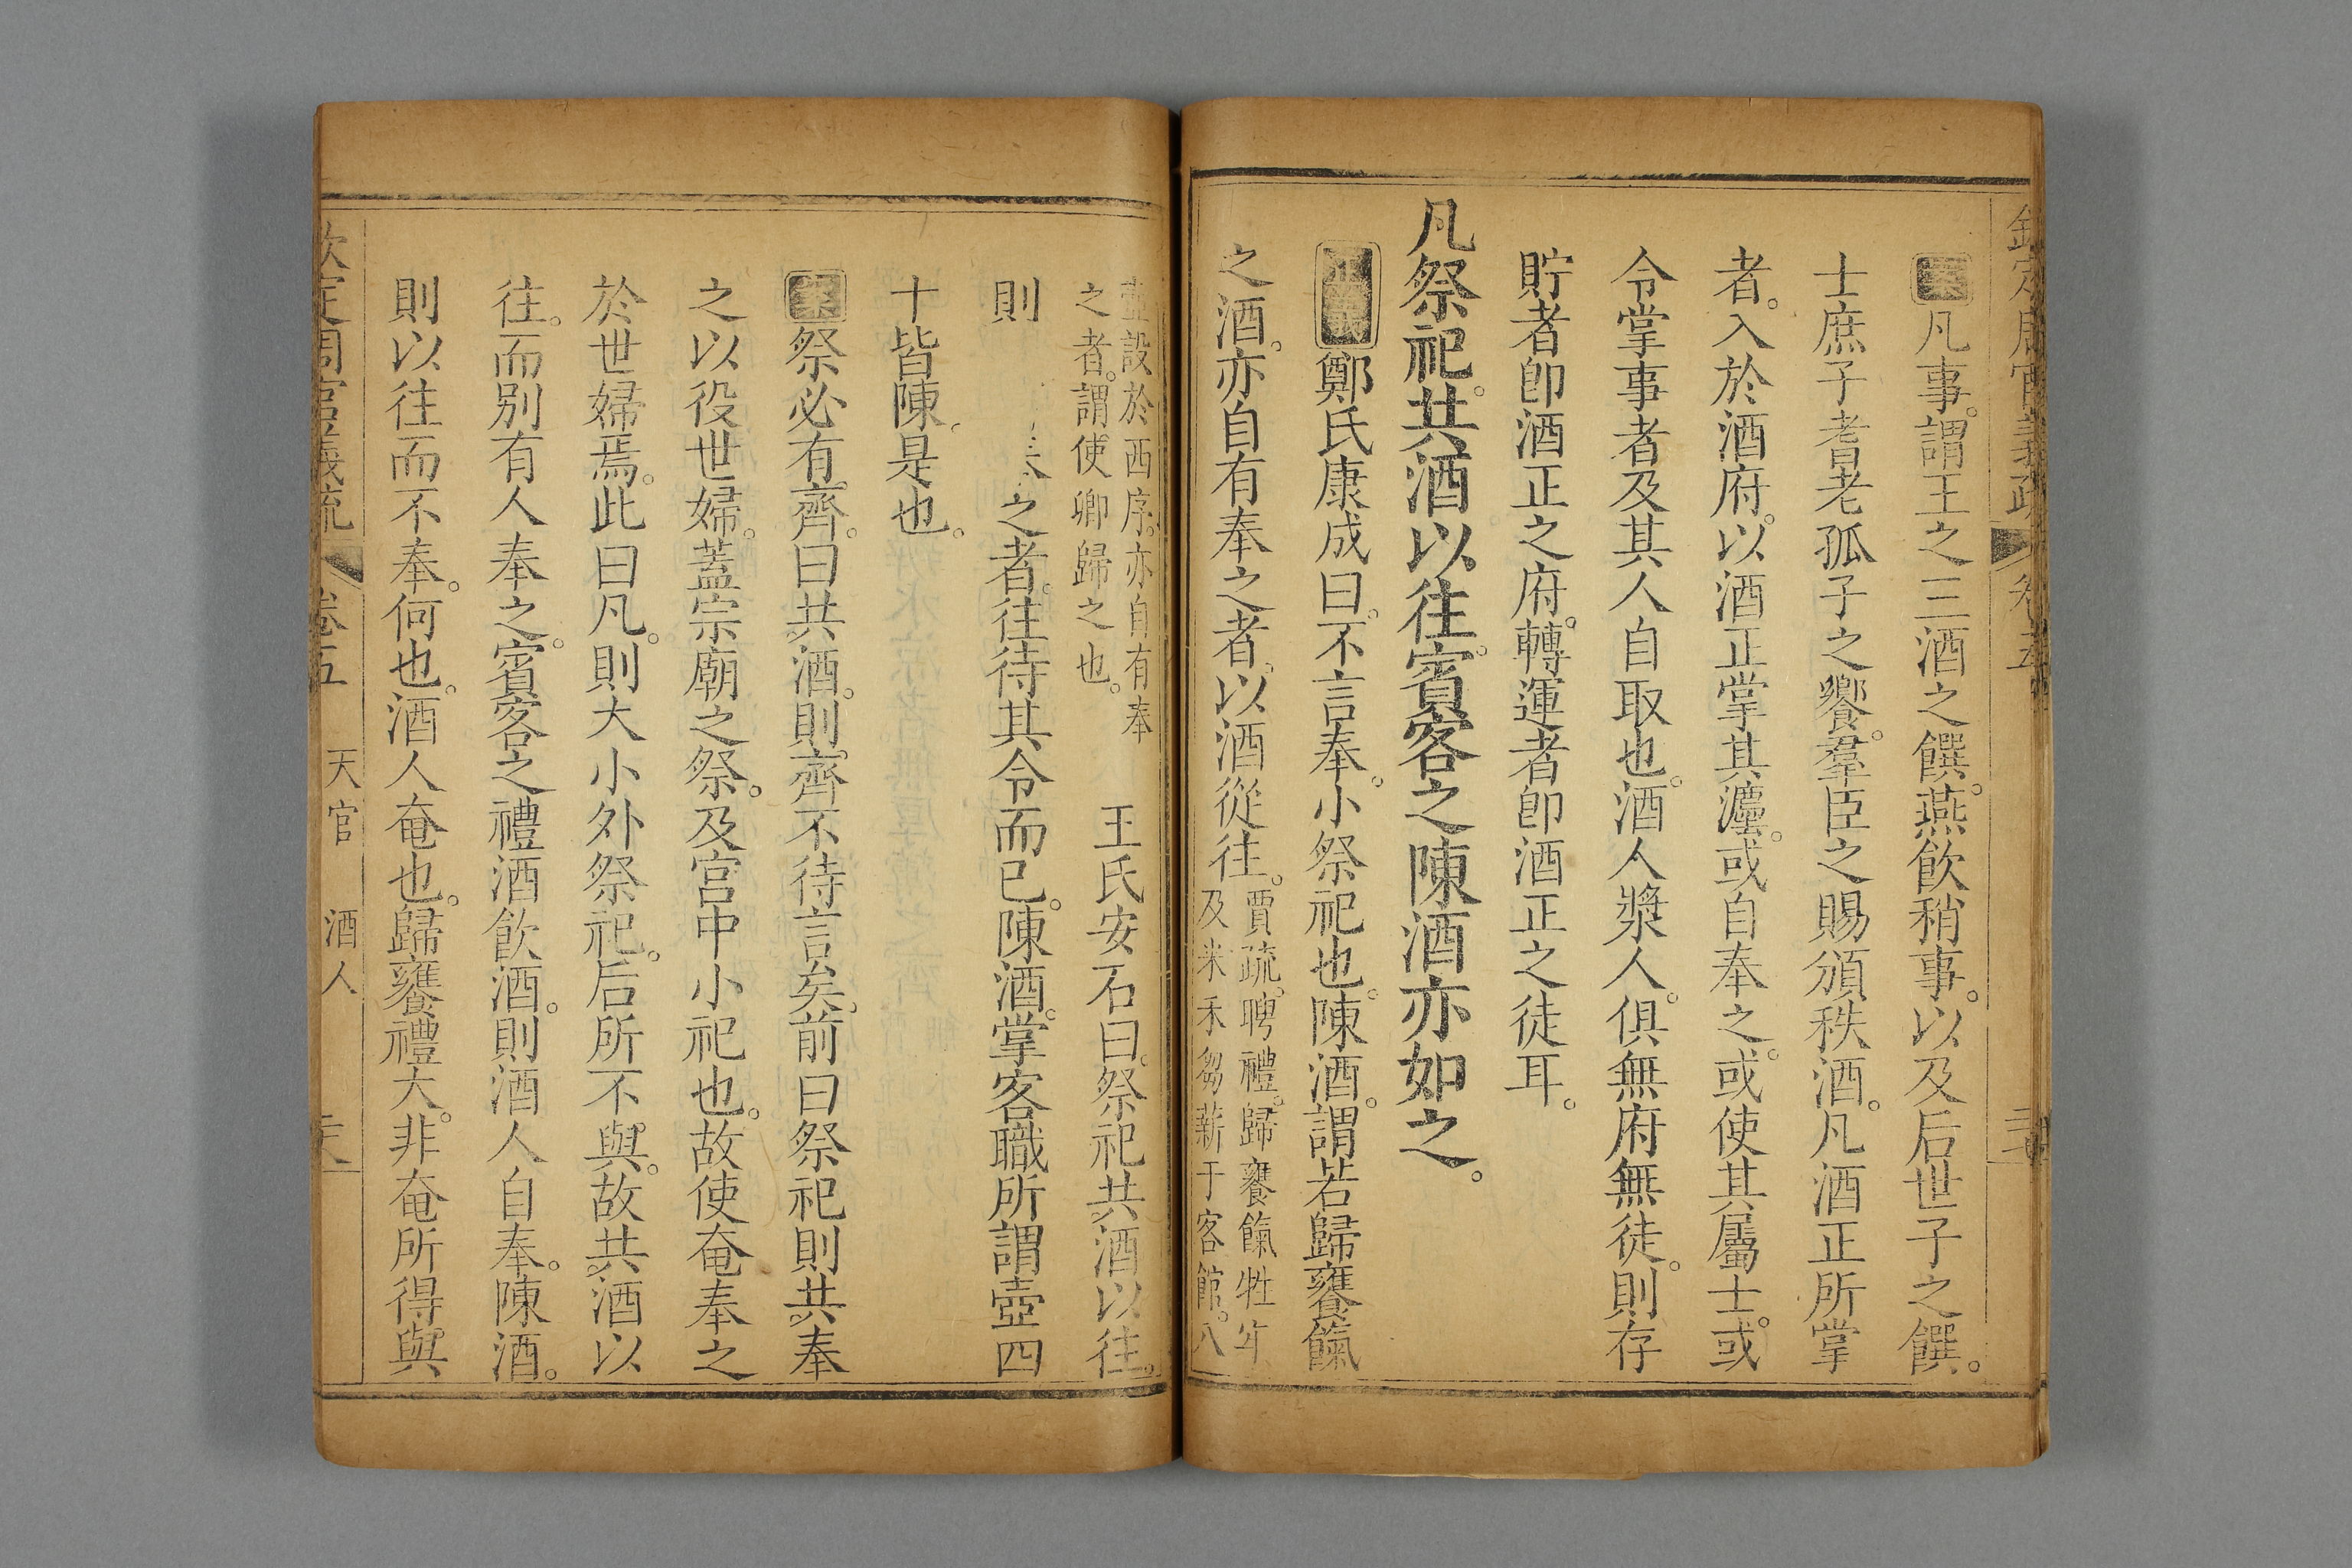 欽定周官義疏 卷五
案凡事。謂王之三酒之饌。燕飲稍事。以及后世子之饌。
士庶子耆老孤子之饗。羣臣之賜頒秩酒。凡酒正所掌
者。入於酒府。以酒正掌其灋。或自奉之。或使其屬士。或
令掌事者及其人自取也。酒人漿人。俱無府無徒。則存
貯者卽酒正之府。轉運者卽酒正之徒耳。
凡祭祀。共酒以往。賓客之陳酒亦如之。
正義鄭氏康成曰。不言奉。小祭祀也。陳酒。謂若歸饔餼
之酒。亦自有奉之者。以酒從往。賈疏。聘禮。歸饔餼牲牢。
及米禾芻薪于客館。八
壺設於西序。亦自有奉
之者。謂使卿歸之也。 王氏安石曰。祭祀共酒以往。
則 之者。往待其令而已。陳酒。掌客職所謂壺四
十皆陳。是也。
案祭必有齊。曰共酒。則齊不待言矣。前曰祭祀則共奉
之以役世婦。蓋宗廟之祭。及宮中小祀也。故使奄奉之
於世婦焉。此曰凡。則大小外祭祀。后所不與。故共酒以
往。而別有人奉之。賓客之禮酒飲酒。則酒人自奉。陳酒。
則以往而不奉。何也。酒人奄也。歸饔禮大。非奄所得與
欽定周官義疏 卷五 天官 酒人